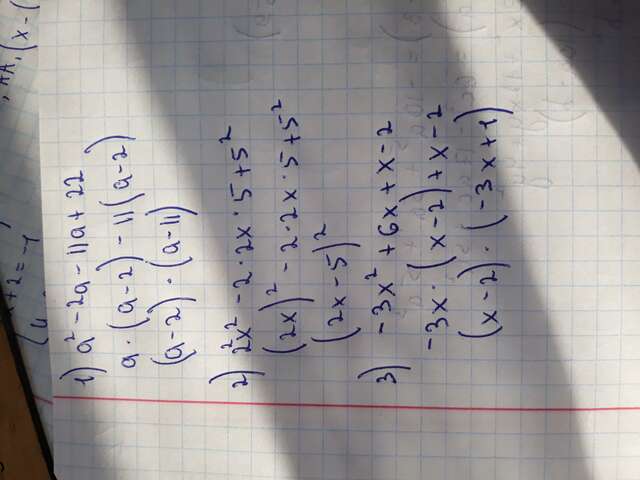 1) a² - 2a - 11a + 22
a · (a - 2) - 11 (a - 2)
(a - 2) · (a - 11)
2) 2²x² - 2 · 2x · 5 + 5²
(2x)² - 2 · 2x · 5 + 5²
(2x - 5)²
3) -3x² + 6x + x - 2
-3x · (x - 2) + x - 2
(x - 2) · (-3x + 1)